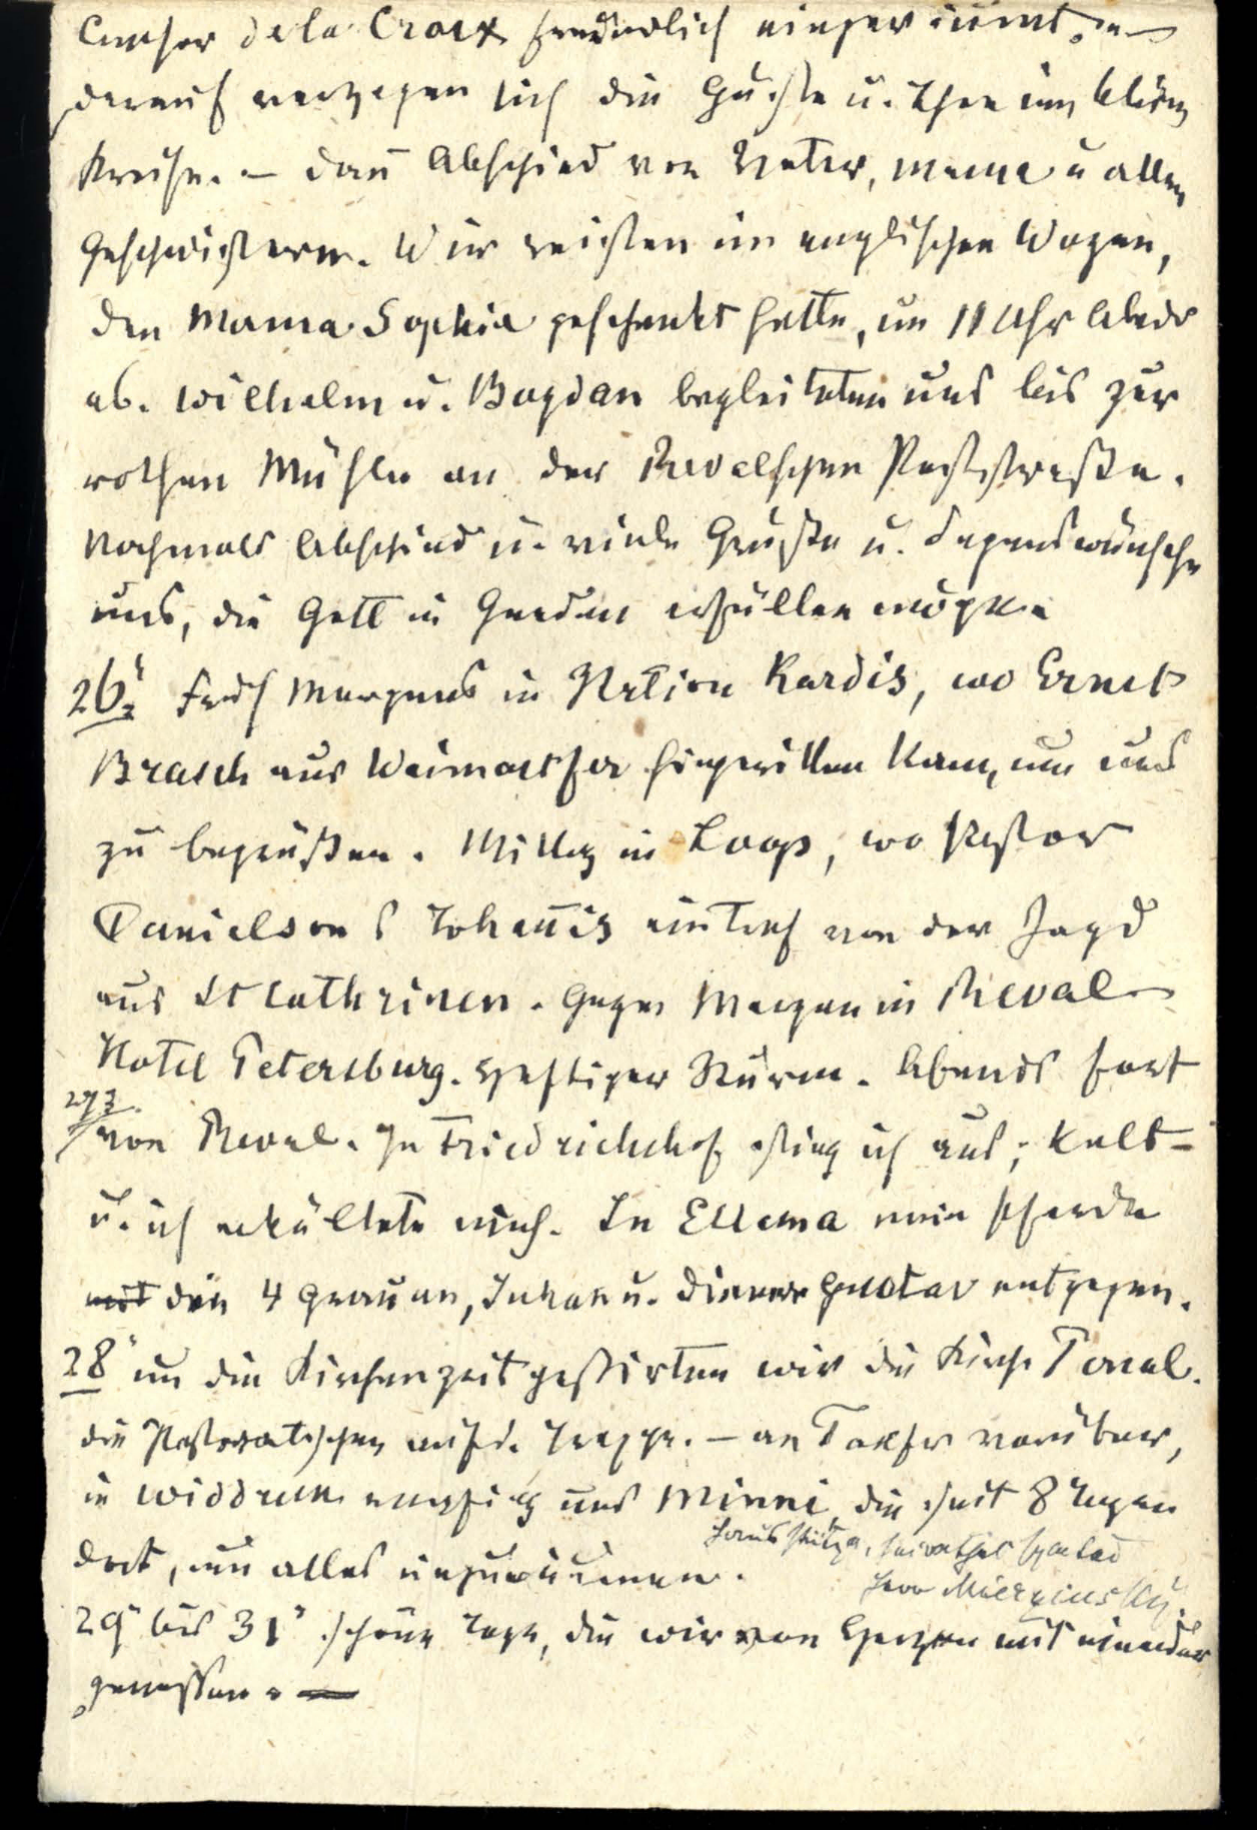 de la Croix freundlich eingeräumt. —
darauf verzogen sich die Gäste u. Thee im kleinen
Kreise. — dann Abschied von Vater, Mama u allen
Geschwistern. Wir reisten im englischen Wagen,
den Mama Sophie geschenkt hatte, um 11 Uhr Abends
ab. Wilhelm u. Bogdan begleiteten uns bis zur
rothen Mühle an der Revalschen Poststraße.
Nochmals Abschied u. viele Grüße u. Segenswünsche
uns, die Gott in Gnaden erfüllen möge.
26. Früh Morgens in Station Kardis, wo Ernst
Brasch aus Waimastfer hingeritten kam, um uns
zu begrüßen. Mittag in Loop, wo Pastor
Danielson S Johannis eintraf von der Jagd
aus St Cathrinen. Gegen Morgen in Reval
Hotel Petersburg. Heftiger Sturm. Abends fort
27
von Reval. In Friedrichshof stieg ich aus; kalt —
u. ich erkältete mich. In Ellema meine Pferde
mit den 4 Grauen, Juhan u. Diener Gustav entgegen.
28 um die Kirchenzeit passirten wir die Kirche Ponal.
die Pastoratschen auf d. Treppe. — an vorüber,
in Widdruck empfing uns Minni die seit 8 Tagen
dort, um alles einzuräumen.
Herr Mierzinsky.
29 bis 31 schöne Tage, die wir von Herzen mit einander
genossen. —